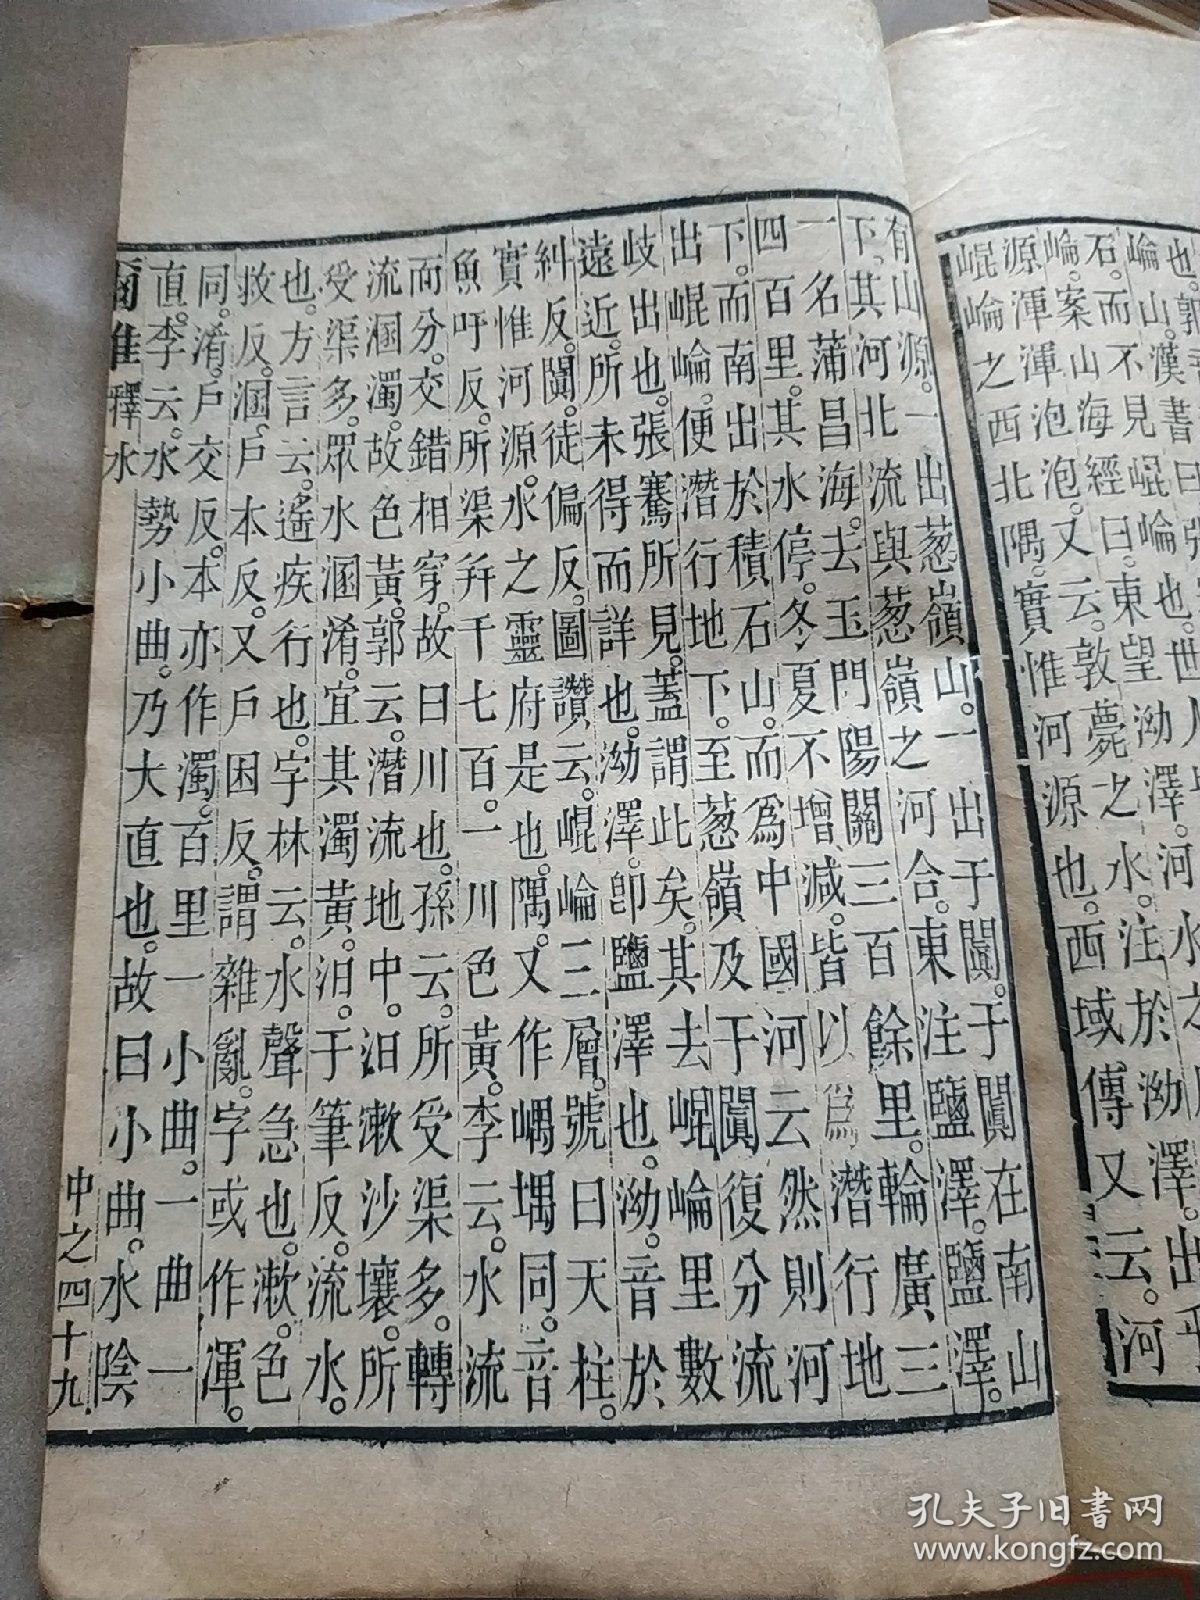 崘山。漢書曰
石。而不見崐崘也。世
崘。案山海經曰。東望泑澤。河水
源渾渾泡泡。又云。敦薨之水。注於泑澤。出乎
崐崘之西北隅。實惟河源也。西域傳又云。河
有山源。一出葱嶺山。一出于闐。于闐在南山
下。其河北流與葱嶺之河合。東注鹽澤。鹽澤。
一名蒲昌海。去玉門陽關三百餘里。輪廣三
四百里。其水停。冬夏不增減。皆以爲潛行地
下。而南出於積石山。而爲中國河云然則河
出崐崘。便潛行地下。至葱嶺及于闐復分流
歧出也。張騫所見。蓋謂此矣。其去崐崘里數
遠近。所未得而詳也。泑澤。卽鹽澤也。泑。音於
糾反。闐。徒偏反。圖讚云。崐崘三層。號曰天柱。
實惟河源。水之靈府是也。隅。又作嵎堣同。音
魚吁反。所渠幷千七百。一川色黃。李云。水流
而分。交錯相穿。故曰川也。孫云。所受渠多。轉
流溷濁。故色黃。郭云。潛流地中。汩漱沙壤。所
受渠多。眾水溷淆。宜其濁黃。汩。于筆反。流水。
也。方言云。遙疾行也。字林云。水聲急也。漱。色
救反。溷。戶本反。又戶困反。謂雜亂。字或作渾。
同。淆。戶交反。本亦作濁。百里一小曲。一曲一
直。李云。水勢小曲。乃大直也。故曰小曲。水陰
爾雅釋水
中之四十九
孔夫子旧书网
www.kongfz.com